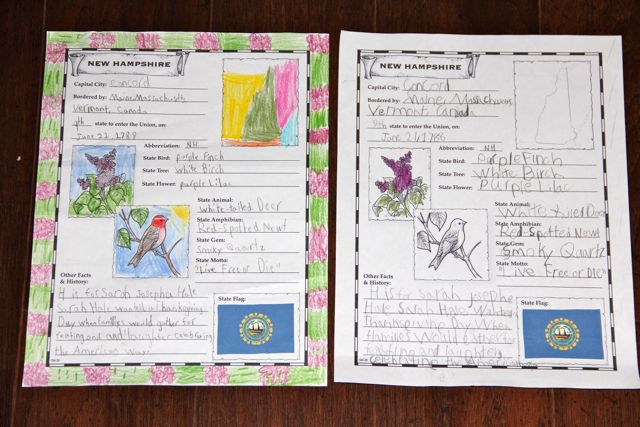 NEW HAMPSHIRE
Capital City: Concord
Bordered by: Maine, Massachusetts
Vermont, Canada
9th state to enter the Union, on:
June 21, 1788
Abbreviation: NH
State Bird: purple Finch
State Tree: White Birch
State Flower: purple Lilac
State Animal:
White-tailed Deer
State Amphibian:
Red-Spotted Newt
State Gem:
Smoky Quartz
State Motto:
"Live Free or Die"
Other Facts
& History:
H is for Sarah Josepha Hale
Sarah Hale wanted a Thanksgiving
Day when families would gather for
the American way.
State Flag:
NEW HAMPSHIRE
Capital City: Concord
Bordered by: Maine,
Vermont, Canada
9th state to enter the Union, on:
June 21, 1788
Abbreviation: NH
State Bird: Purple Finch
State Tree: White Birch
State Flower: Purple Lilac
State Animal:
White tailed Deer
State Amphibian:
Red-Spotted Newt
State Gem:
Smoky Quartz
State Motto:
"Live Free or Die"
Other Facts
& History:
H is for Sarah Josepha
Hale Sarah Hale
Thanksgiving Day When
Families would gather for
celebrating the
State Flag: